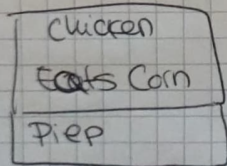 Chicken
Eats Corn
Piep